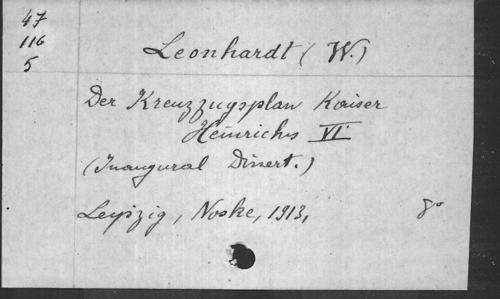 47
116
5
Leonhardt (W.)
Der Kreuzzugsplan Kaiser
Heinrichs VI.
(Inaugural Dissert.)
Leipzig, Noske, 1913, 8°